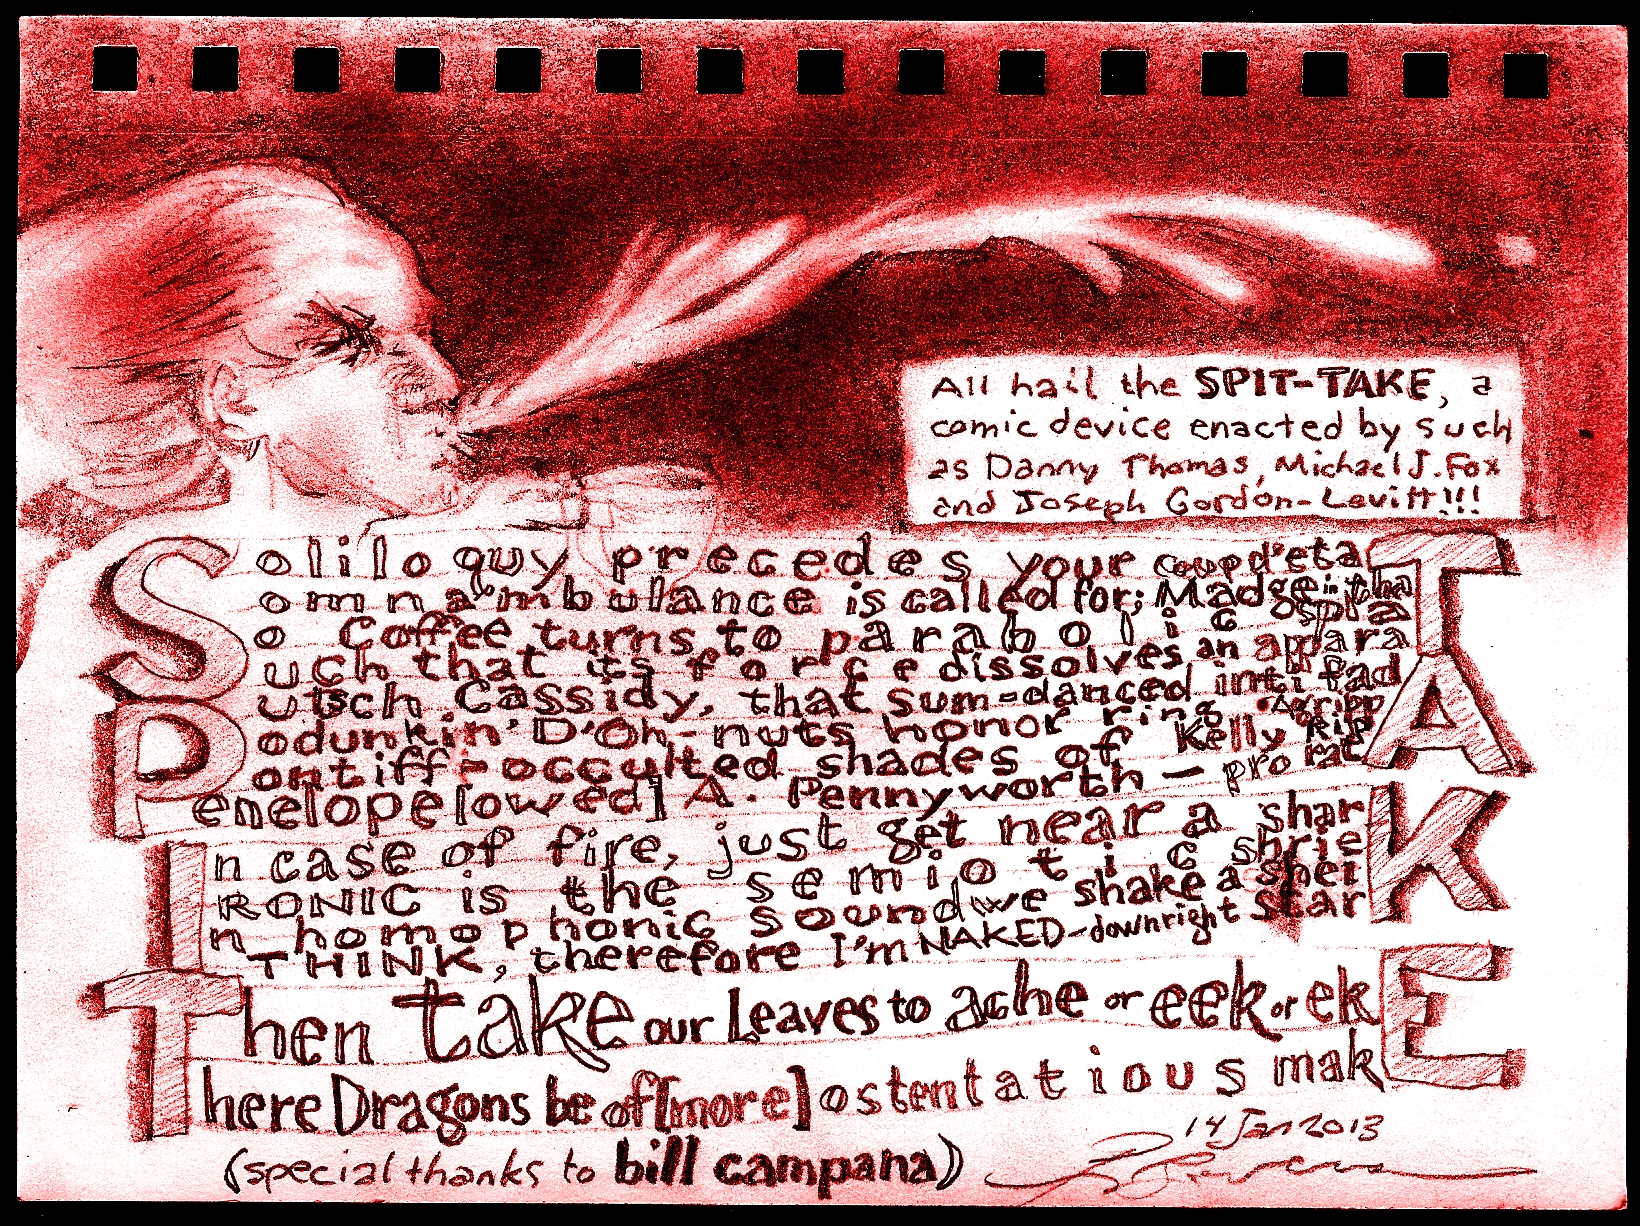 All hail the SPIT-TAKE, a
comic device enacted by such
as Danny Thomas, Michael J. Fox
and Joseph Gordon-Levitt!!!
Soliloquy precedes your coup d'etaT
omnambulance is called for; Madge in tha
o coffee turns to parabolic spla
uch that its force dissolves an appara
Putsch Cassidy, that sum-danced intifadA
odunkin' D'Oh-nuts honor ring Agripp
ontiff-occulted shades of Kelly Rip
enelope[owed] A. Pennyworth — pro rat
In case of fire, just get near a sharK
RONIC is the semiotic shrie
n homophonic sound we shake a shei
THINK, therefore I'm NAKED-downright star
Then take our leaves to ache or eek or ekE
here Dragons be of[more] ostentatious mak
(special thanks to bill campana)
14 Jan 2013